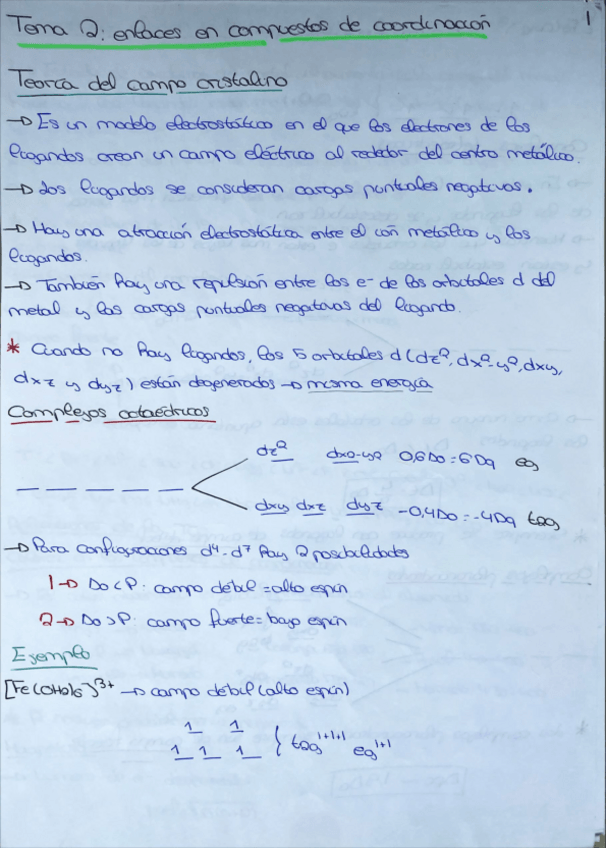 1
Tema 2: enlaces en compuestos de coordinación
Teoría del campo cristalino
→ Es un modelo electrostático en el que los electrones de los
ligandos crean un campo eléctrico al rededor del centro metálico.
→ Los ligandos se consideran cargas puntuales negativas.
→ Hay una atracción electrostática entre el ión metálico y los
ligandos.
→ También hay una repulsión entre los e- de los orbitales d del
metal y las cargas puntuales negativas del ligando.
* Cuando no hay ligandos, los 5 orbitales d (dz², dx²-y², dxy,
dxz y dyz) están degenerados → misma energía
Complejos octaédricos
dz² dx²-y² 0,6Do = 6Dq eg
dxy dxz dyz -0,4Do = -4Dq t2g
→ Para configuraciones d4-d7 hay 2 posibilidades
1→ Do<P: campo débil = alto espín
2→ Do>P: campo fuerte = bajo espín
Ejemplo
[Fe(OH2)6]3+ → campo débil (alto espín)
1 1
1 1 1 } t2g 1+1+1 eg 1+1